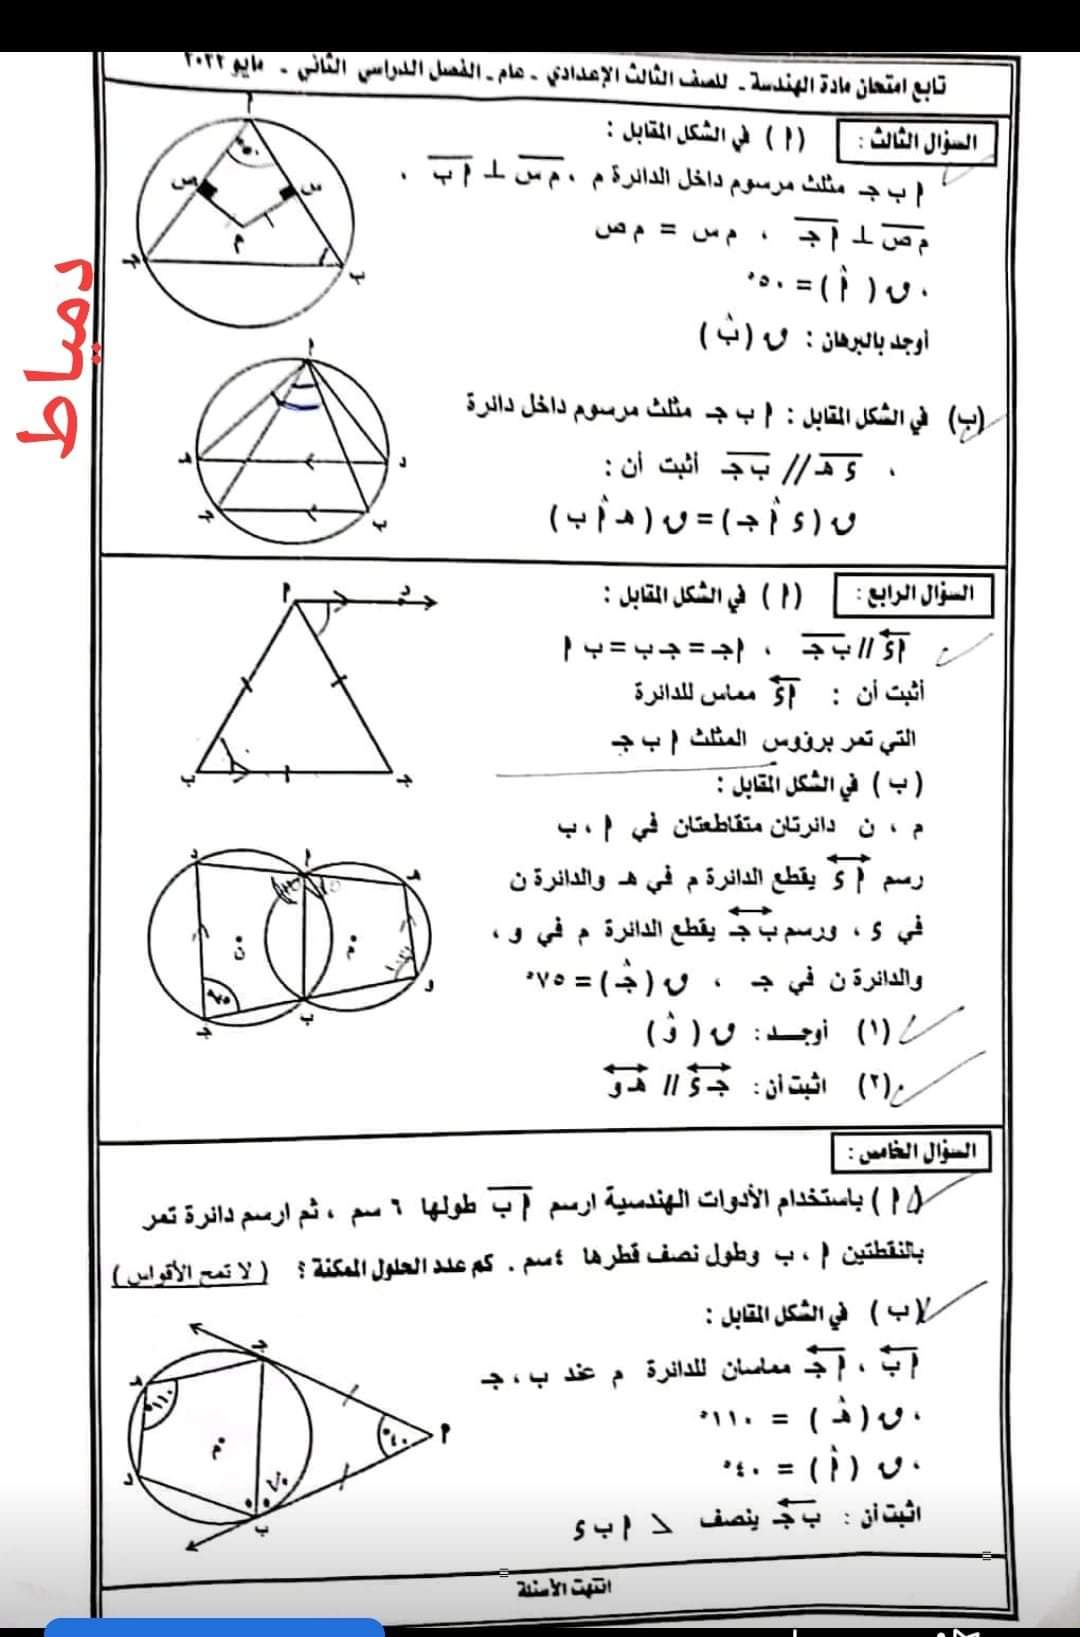 تابع امتحان مادة الهندسة ـ للصف الثالث الإعدادي ـ عام ـ الفصل الدراسي الثاني ـ مايو ٢٠٢٢
دمياط
السؤال الثالث :
( أ ) في الشكل المقابل :
أ ب جـ مثلث مرسوم داخل الدائرة م ، م س ⊥ أ ب ،
م ص ⊥ أ جـ ، م س = م ص
، ق ( أ ) = ٥٠°
أوجد بالبرهان : ق ( ب )
أ
٥٠°
س
ص
م
ب
جـ
(ب) في الشكل المقابل : أ ب جـ مثلث مرسوم داخل دائرة
، ء هـ // ب جـ أثبت أن :
ق ( ء أ جـ ) = ق ( هـ أ ب )
أ
هـ
د
جـ
ب
السؤال الرابع :
( أ ) في الشكل المقابل :
أ ء // ب جـ ، أ جـ = جـ ب = ب أ
أثبت أن : أ ء مماس للدائرة
التي تمر برؤوس المثلث أ ب جـ
أ
د
ب
جـ
( ب ) في الشكل المقابل :
م ، ن دائرتان متقاطعتان في أ ، ب
رسم أ ء يقطع الدائرة م في هـ والدائرة ن
في ء ، ورسم ب جـ يقطع الدائرة م في و ،
والدائرة ن في جـ ، ق ( جـ ) = ٧٥°
(١) أوجـــد : ق ( و )
(٢) اثبت أن : جـ ء // هـ و
د
أ
هـ
ن
م
و
ب
جـ
٧٥°
السؤال الخامس :
( أ ) باستخدام الأدوات الهندسية ارسم أ ب طولها ٦ سم ، ثم ارسم دائرة تمر
بالنقطتين أ ، ب وطول نصف قطرها ٤سم . كم عدد الحلول الممكنة ؟ ( لا تمح الأقواس )
( ب ) في الشكل المقابل :
أ ب ، أ جـ مماسان للدائرة م عند ب ، جـ
، ق ( هـ ) = ١١٠°
، ق ( أ ) = ٤٠°
اثبت أن : ب جـ ينصف > أ ب ء
جـ
هـ
١١٠°
م
٤٠°
أ
د
٧٠
ب
انتهت الأسئلة